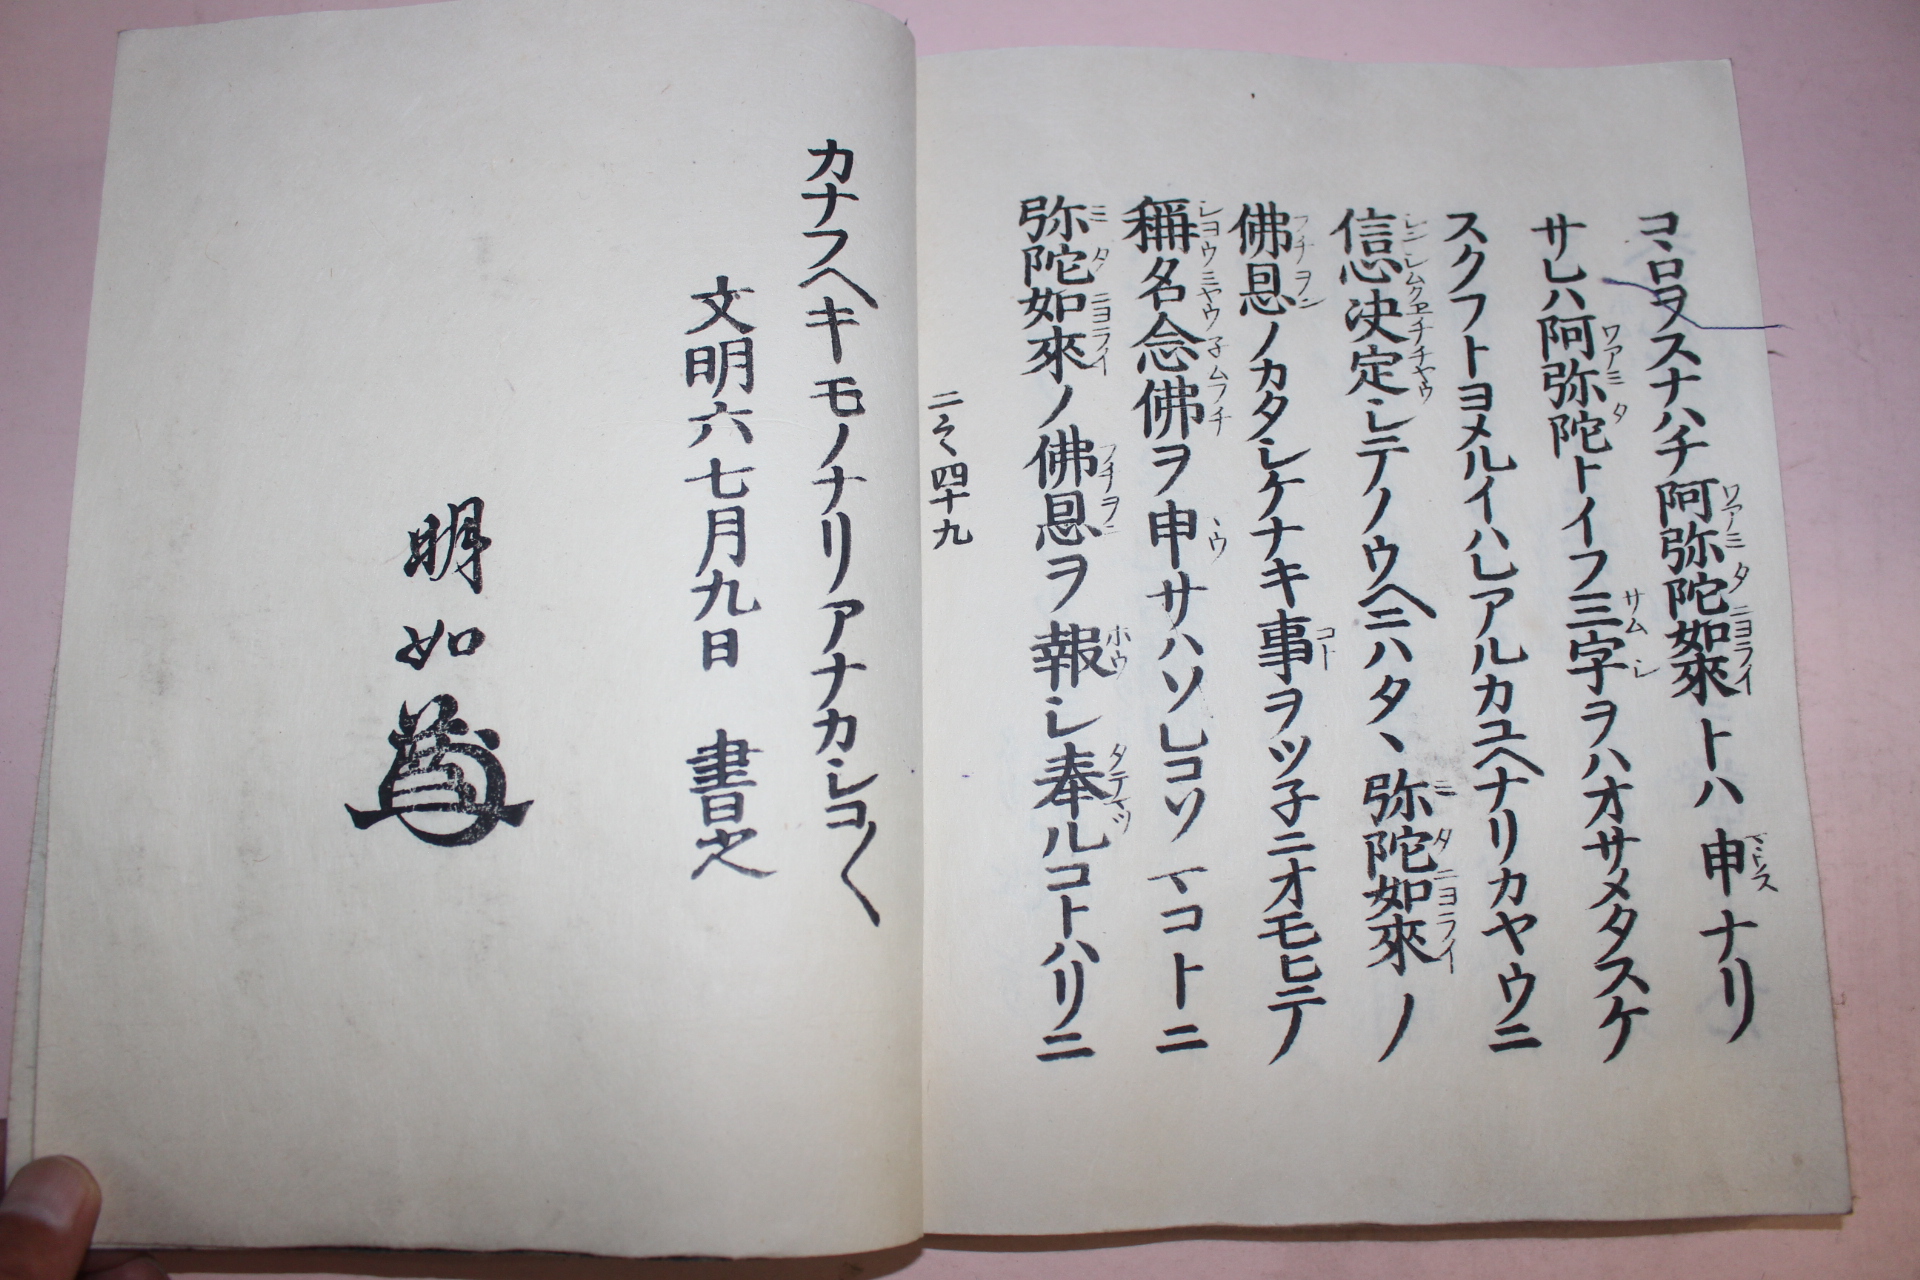 コヽロヲスナハチ阿弥陀如來トハ申ナリ
サレハ阿弥陀トイフ三字ヲハオサメタスケ
スクフトヨメルイハレアルカユヘナリカヤウニ
信心决定シテノウヘニハタヽ弥陀如來ノ
佛恩ノカタシケナキ事ヲツ子ニオモヒテ
稱名念佛ヲ申サハソレコソマコトニ
弥陀如來ノ佛恩ヲ報シ奉ルコトハリニ
四十九
カナフヘキモノナリアナカシコ〱
文明六七月九日 書之
明如